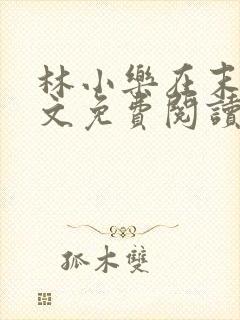 林小樂在末
文免費閱讀
孤木雙